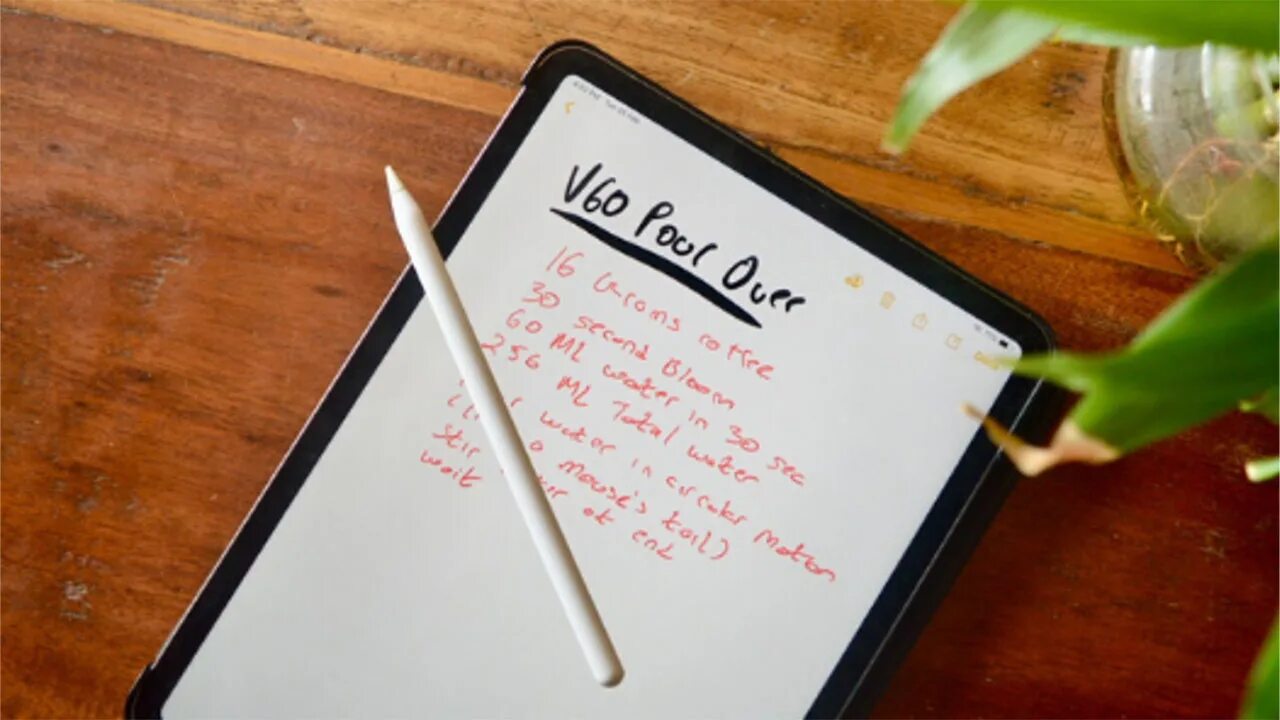 V60 Pour Over
16 Grams coffee
30 second Bloom
60 ML water in 30 sec
256 ML Total water
water in circular motion
mouse's tail)
stir at end
wait